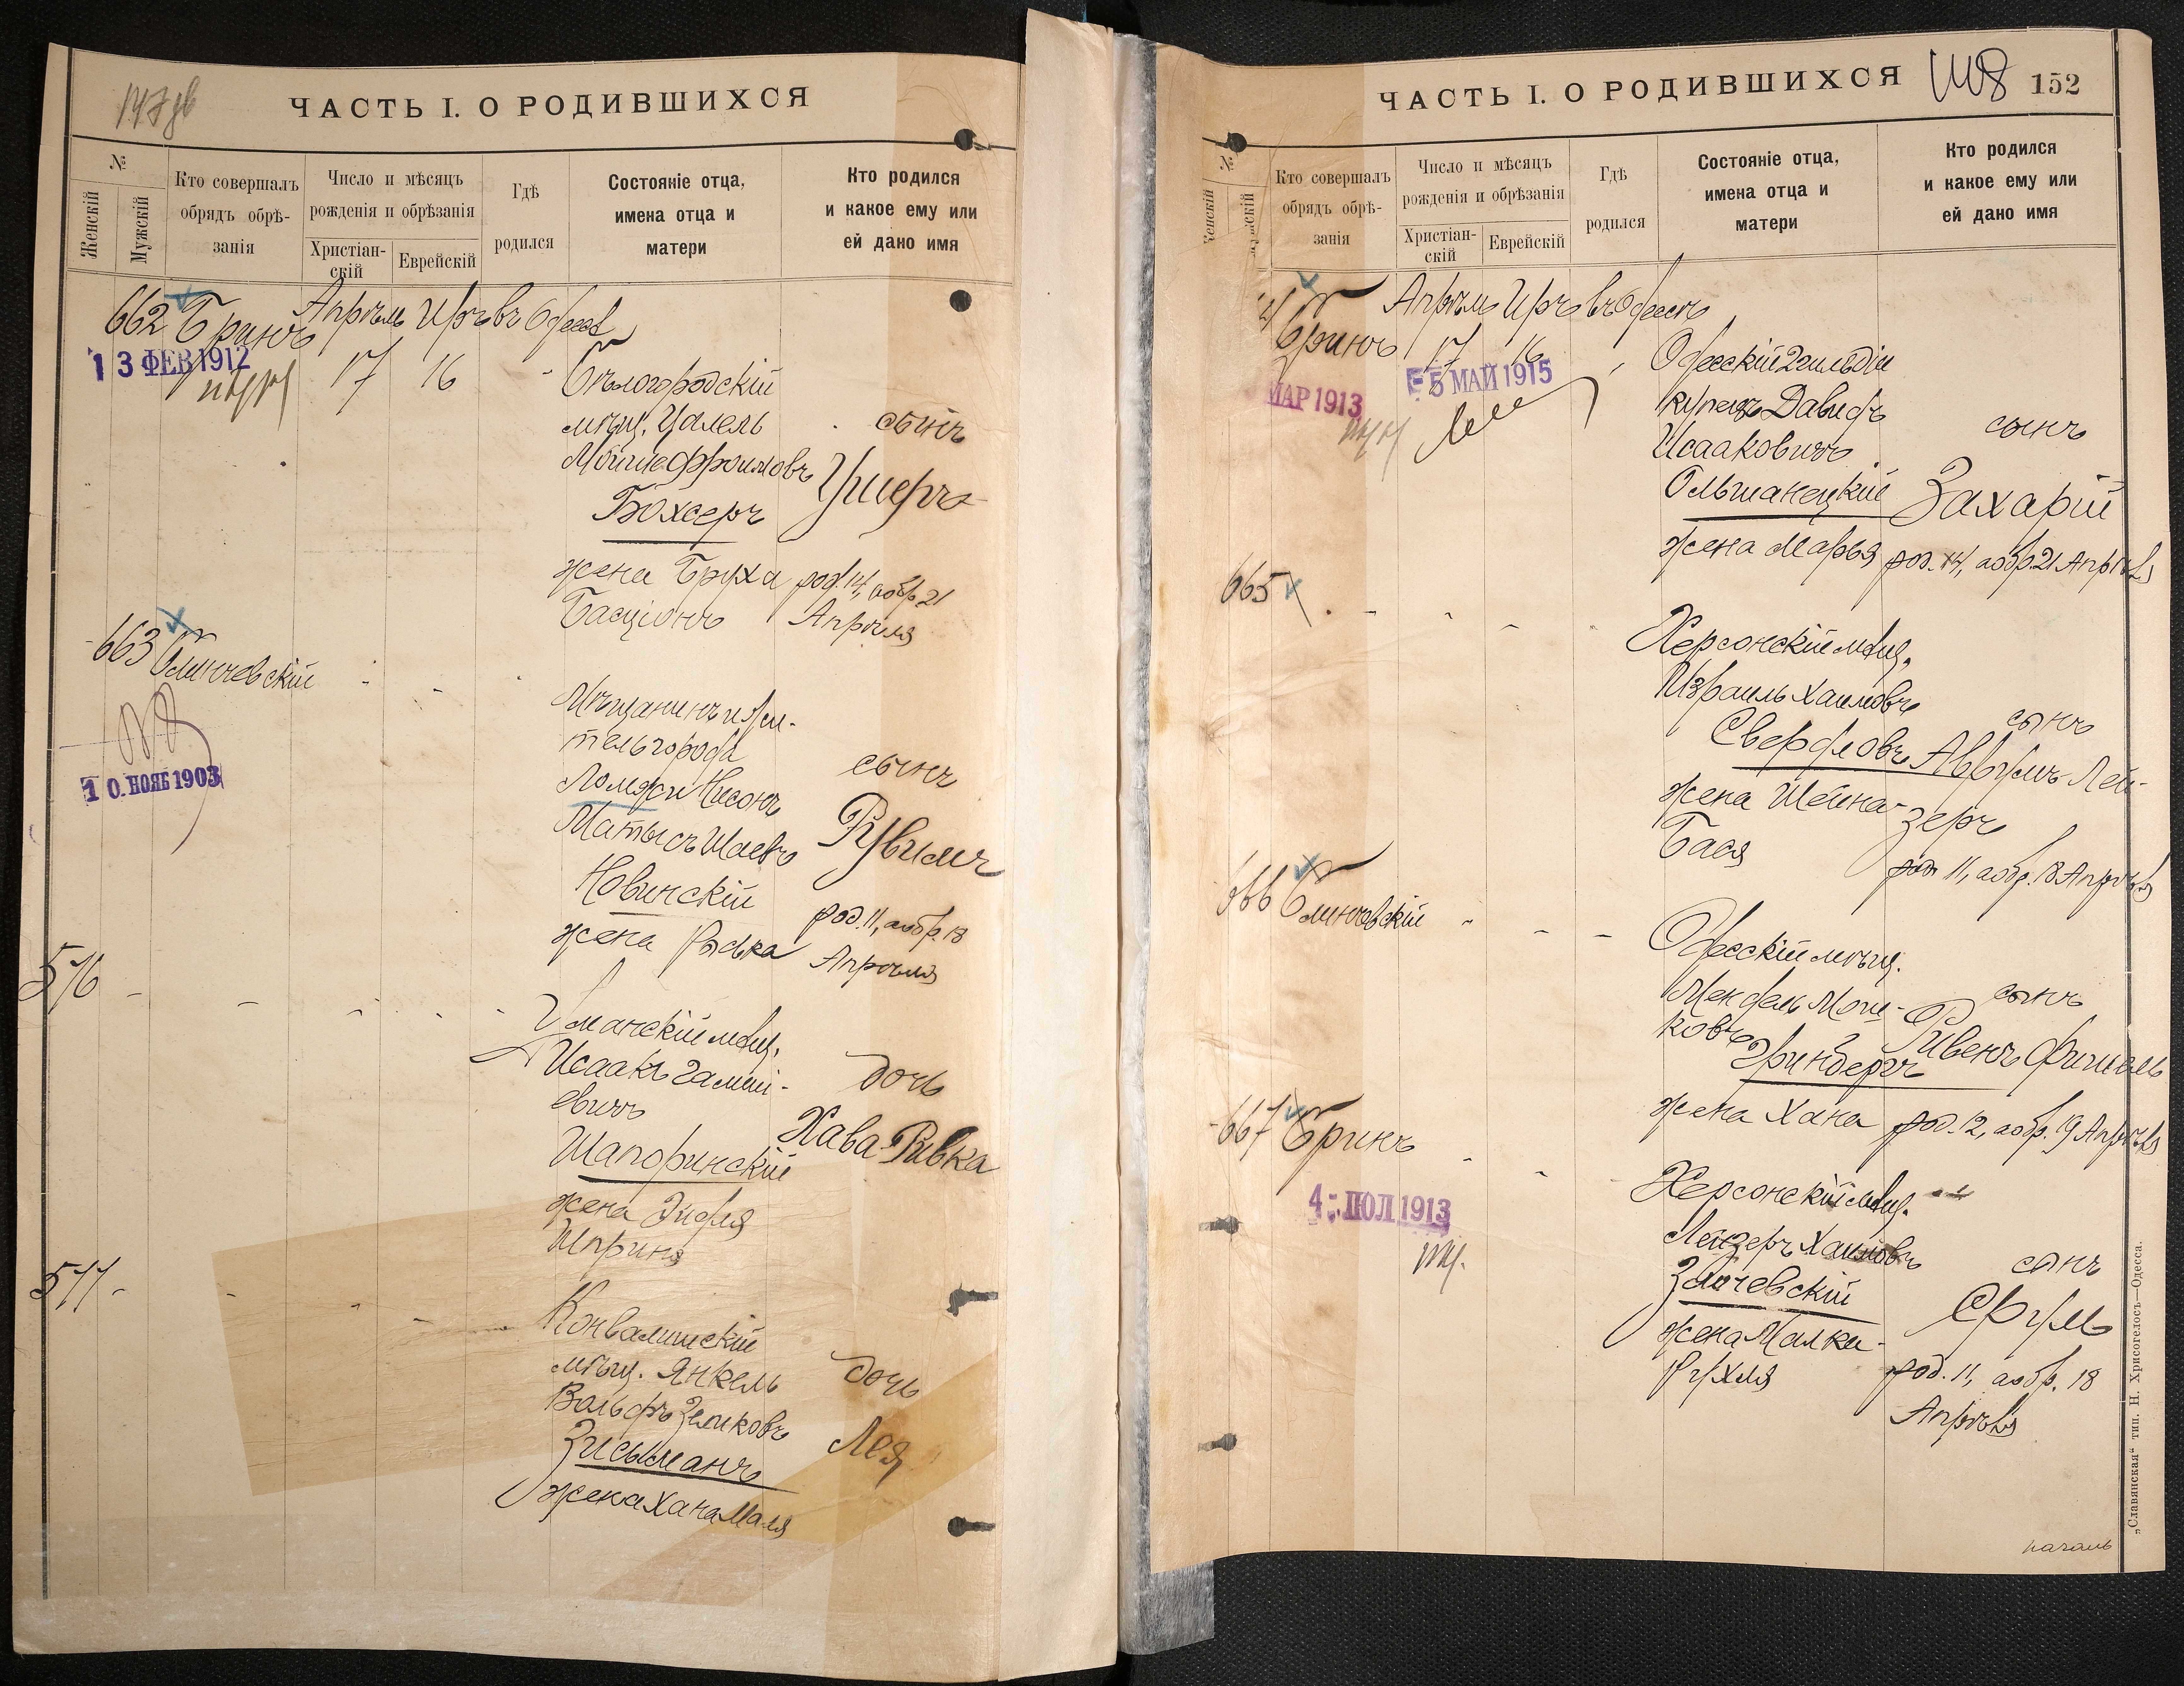 ЧАСТЬ I. О РОДИВШИХСЯ
№
Женскій
Мужскій
Кто совершалъ
обрядъ обрѣ-
занія
Число и мѣсяцъ
рожденія и обрѣзанія
Христіан-
скій
Еврейскій
Гдѣ
родился
Состояніе отца,
имена отца и
матери
Кто родился
и какое ему или
ей дано имя
662 Бринъ Апрѣль Иръ въ Одессѣ
13 ФЕВ 1912
17 16
Бѣлогородскій
мѣщ. Цалель
Мойше Фроимовъ
Бохсеръ
жена Бруха
Басціонъ
сынъ
Ушеръ
род. 14, а обр. 21
Апрѣля
663 Олинчевскій
10. НОЯБ 1903
Мѣщанинъ и жи-
тель города
Ломжи Нисонъ
Матысъ Шаевъ
Новинскій
жена Роська
сынъ
Рувимъ
род. 11, а обр. 18
Апрѣля
576
Уманскій мѣщ.
Исаакъ Гамши-
евичъ
Шапоринскій
жена Эйдля
Шприня
дочь
Хава-Ривка
577
мѣщ. Янкель
Вольфъ Зеликовъ
Зисьманъ
жена Хана Маля
дочь
Лея
ЧАСТЬ I. О РОДИВШИХСЯ
152
№
Женскій
Мужской
Кто совершалъ
обрядъ обрѣ-
занія
Число и мѣсяцъ
рожденія и обрѣзанія
Христіан-
скій
Еврейскій
Гдѣ
родился
Состояніе отца,
имена отца и
матери
Кто родился
и какое ему или
ей дано имя
Бринъ Апрѣль Иръ въ Одессѣ
17 16
МАР 1913
5 МАЙ 1915
Одесскій 2 гильдіи
купецъ Давидъ
Исааковичъ
Ольшанецкій
жена Марья
сынъ
Захарій
род. 14, а обр. 21 Апрѣля
665
Херсонскій мѣщ.
Израиль Хаимовъ
Свердловъ
жена Шейна-
Бася
сынъ
Аврумъ Лей-
зеръ
род. 11, а обр. 18 Апрѣля
666 Олинчевскій
Одесскій мѣщ.
Мендель Мош-
ковъ
Гринбергъ
жена Хана
сынъ
Рувенъ Фишель
род. 12, а обр. 19 Апрѣля
667 Бринъ
4 ІЮЛ 1913
Херсонскій мѣщ.
Лейзеръ Хаимовъ
Злочевскій
жена Малка-
Рухля
сынъ
Сруль
род. 11, а обр. 18
Апрѣля
„Славянская“ тип. Н. Хрисогелосъ—Одесса.